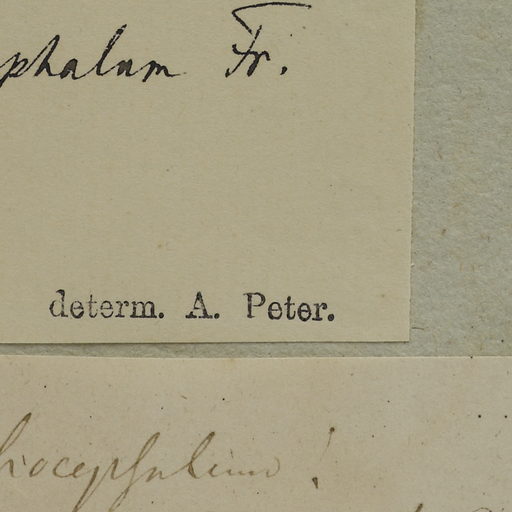 phalum Fr.
determ. A. Peter.